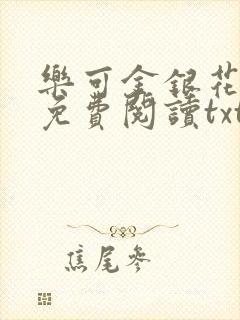 樂可金銀花
免費閱讀txt
焦尾參